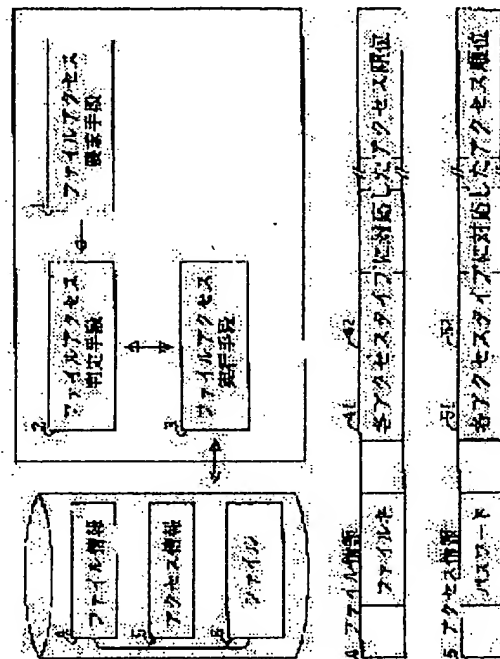 1
ファイルアクセス
要求手段
2
ファイルアクセス
判定手段
3
ファイルアクセス
実行手段
4
ファイル情報
5
アクセス情報
6
ファイル
4 ファイル情報
41
42
ファイル名
各アクセスタイプに対応したアクセス順位
5 アクセス情報
51
52
パスワード
各アクセスタイプに対応したアクセス順位